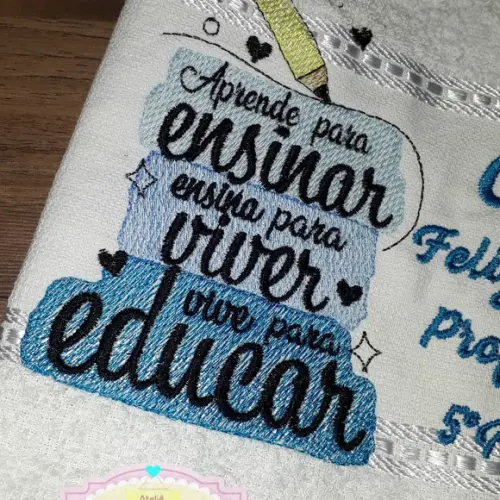 Aprende para
ensinar
ensina para
viver
vive para
educar
Feli
pro
5º
Ateliê